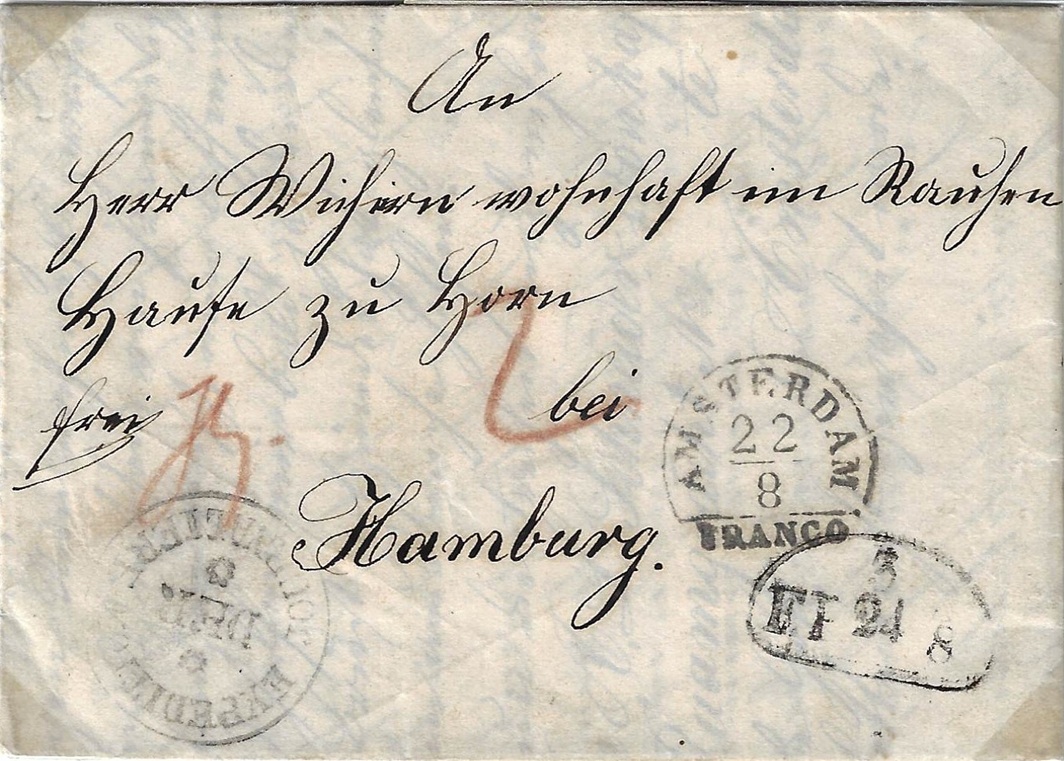 An
Herr Wichern wohnhaft im Rauhen
Hause zu Horn
frei
bei
Hamburg.
AMSTERDAM
22
8
FRANCO
3
ET 24 8
EXPEDIT